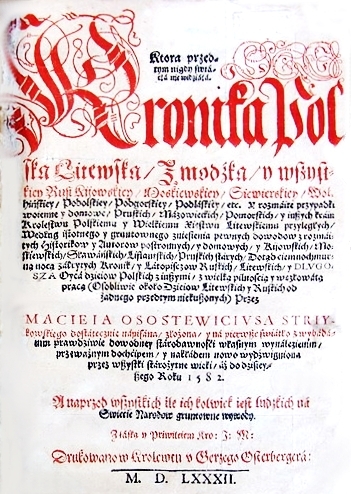 Ktora przed-
tym nigdy świá-
tła nie widziáłá.
Kronika Pol
ska Litewska/ Zmodźka/ y wszystkiey
kiey Rusi Kijowskiey/ Moskiewskiey/ Siewierskiey/ Wol-
hińskiey/ Podolskiey/ Podgorskiey/ Podláskiey/ etc. Y rozmáite przypadki
woienne y domowe/ Pruskich/ Mázowieckich/ Pomorskich/ y inszych krain
Krolestwu Polskiemu y Wielkiemu Xięstwu Litewskiemu przyległych/
Według istotnego y gruntownego zniesienia pewnych dowodow z rozmái-
tych Historikow y Autorow postronnych/ y domowych/ y Kijowskich/ Mo-
skiewskich/ Sławáńskich/ Liflantskich/ Pruskich stárych/ Dotąd ciemnochmur-
ną nocą zákrytych Kronik/ y Látopiszcow Ruskich/ Litewskich/ y DLVGO-
SZA Oycá dzieiow Polskich z inszymi/ z wielką pilnością y węzłowátą
pracą (Osobliwie około Dzieiow Litewskich y Ruskich od
żadnego przedtym niekuszonych) Przez
MACIEIA OSOSTEWICIVSA STRIY-
kowskiego dostátecznie nápisána/ złożona/ y ná pierwsze świátło z wybádá-
nim prawdziwie dowodney stárodawności własnym wynálezienim/
przeważnym dochćipem/ y nakłádem nowo wydźwigniona
przez wszystki stárożytne wieki/ áż do dzisiey-
szego Roku 1582.
A naprzod wszystkich ile ich kolwiek iest ludzkich ná
Swiecie Narodow gruntowne wywody.
Z łáską y Priwileiem Kro: J: M:
Drukowano w Krolewcu v Gerzego Osterbergerá:
M. D. LXXXII.